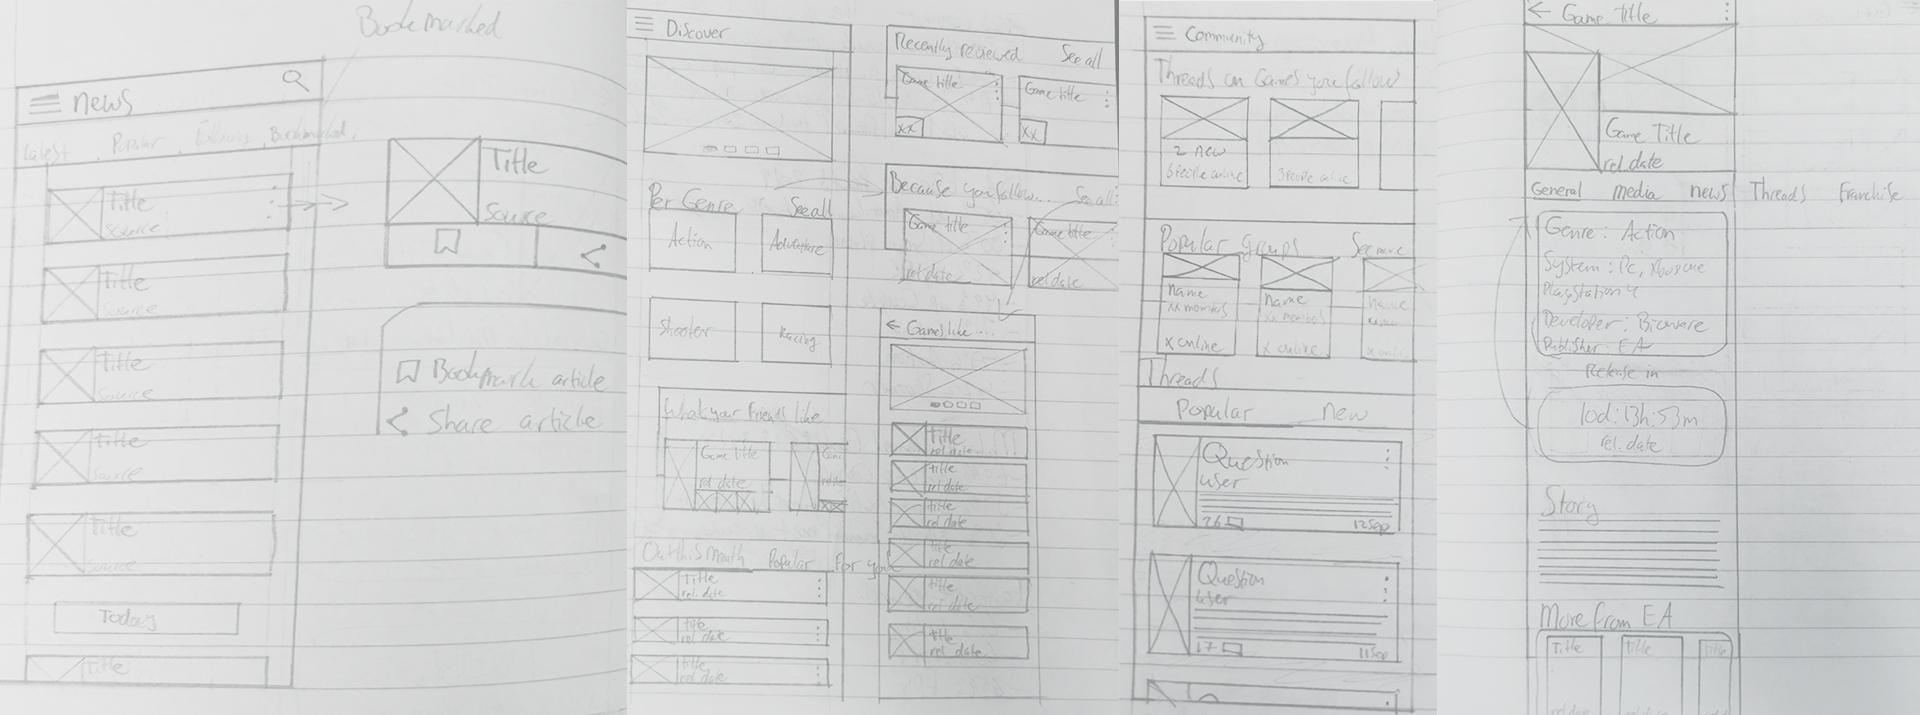 Bookmarked
news
Latest Popular Following Bookmarked
Title
Source
Title
Source
Title
Source
Title
Source
Title
Source
Today
Title
Title
Source
Bookmark article
Share article
Discover
Per Genre See all
Action Adventure
Shooter Racing
What your friends like
Game title
rel date
Out this month Popular For you
Title
rel. date
title
rel date
title
rel date
Recently reviewed See all
Game title Game title
XX XX
Because you follow... See all
Game title Game title
rel date rel date
Games like ...
Title
rel date
title
rel date
title
rel date
title
rel date
title
rel date
title
rel date
Community
Threads on Games you follow
2 new
6 people online 3 people online
Popular groups See more
name name name
xx members xx members
x online x online x onli
Threads
Popular new
Question
user
26 12 Sep
Question
user
17 11 Sep
Game Title
Game Title
rel. date
General media news Threads Franchise
Genre : Action
System : Pc, Xbox one
Playstation 4
Developer : Bioware
Publisher : EA
Release in
10d: 13h: 53m
rel. date
Story
More from EA
Title Title Title
rel date rel date